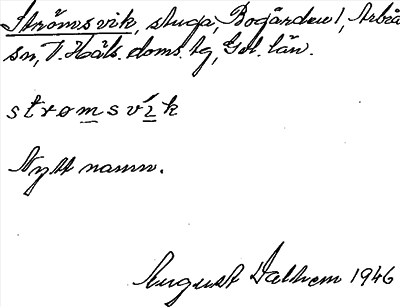 Strömsvik, stuga, Bogården 1, Arbrå
sn, V. Häls. doms. tg, Gvl. län.
strømsvík
Nytt namn.
August Dalhem 1946